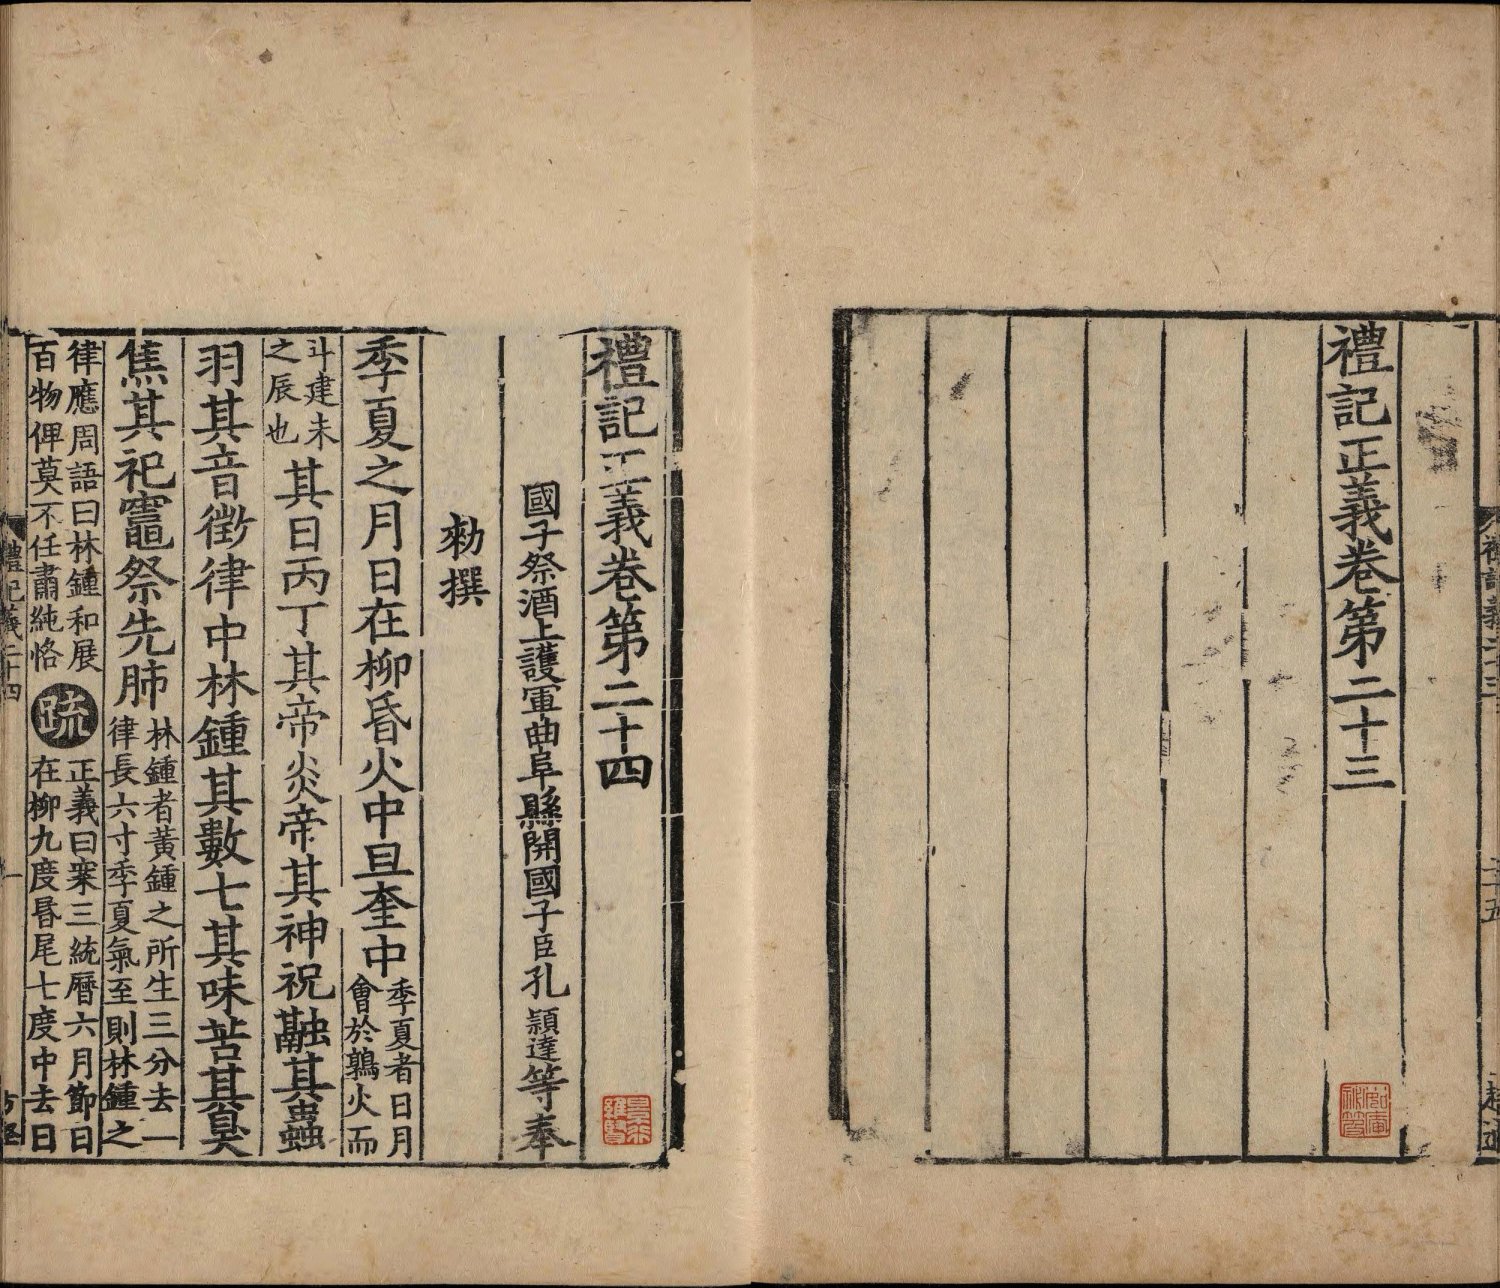 禮記正義卷第二十三
禮記正義卷第二十四
國子祭酒上護軍曲阜縣開國子臣孔穎達等奉
勑撰
季夏之月日在柳昏火中旦奎中季夏者日月會於鶉火而
斗建未之辰也其日丙丁其帝炎帝其神祝融其蟲
羽其音徵律中林鍾其數七其味苦其臭
焦其祀竈祭先肺林鍾者黃鍾之所生三分去一律長六寸季夏氣至則林鍾之
律應周語曰林鍾和展百物俾莫不任肅純恪疏正義曰案三統曆六月節日在柳九度昏尾七度中去日
禮記義二十四
一